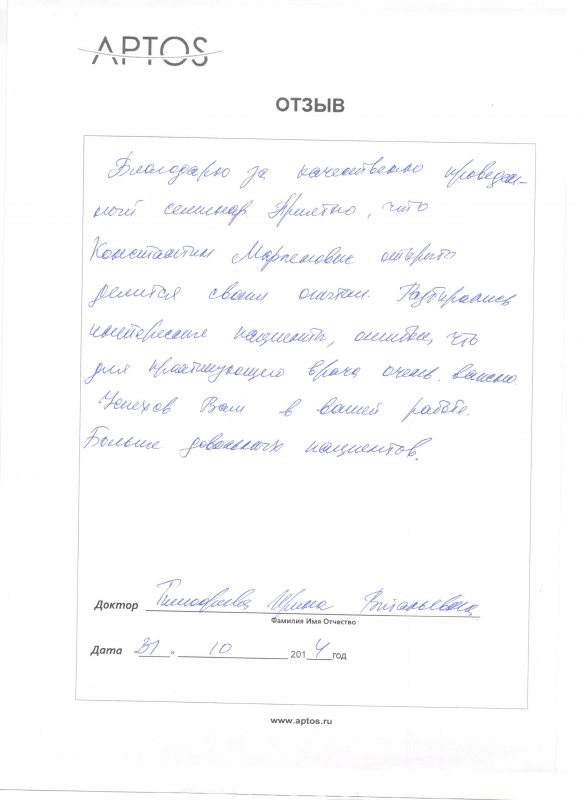 APTOS
ОТЗЫВ
Благодарю за качественно проведен-
ный семинар Приятно, что
Константин открыто
делится своим опытом. Разбирались
интересные пациенты, ошибки, что
для практикующего врача очень важно.
Успехов Вам в вашей работе.
Больше довольных пациентов.
Доктор Тимофеева Ирина Витальевна
Фамилия Имя Отчество
Дата 31 " 10 2014 год
www.aptos.ru